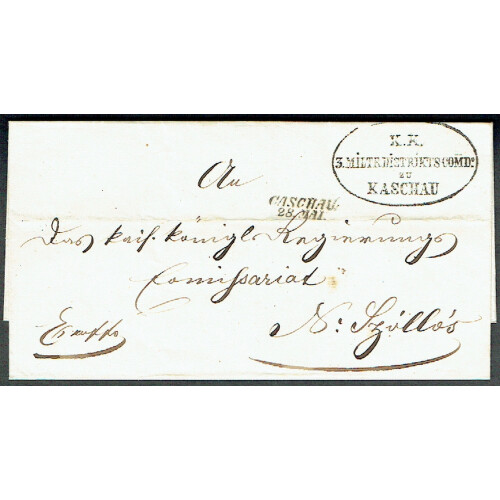 K.K.
3. MILTR DISTRIKTS COMD:
ZU
KASCHAU
An
CASCHAU.
28. MAI.
Das kais. königl. Regierungs
Comissariat
Ex offo
N: Szöllös